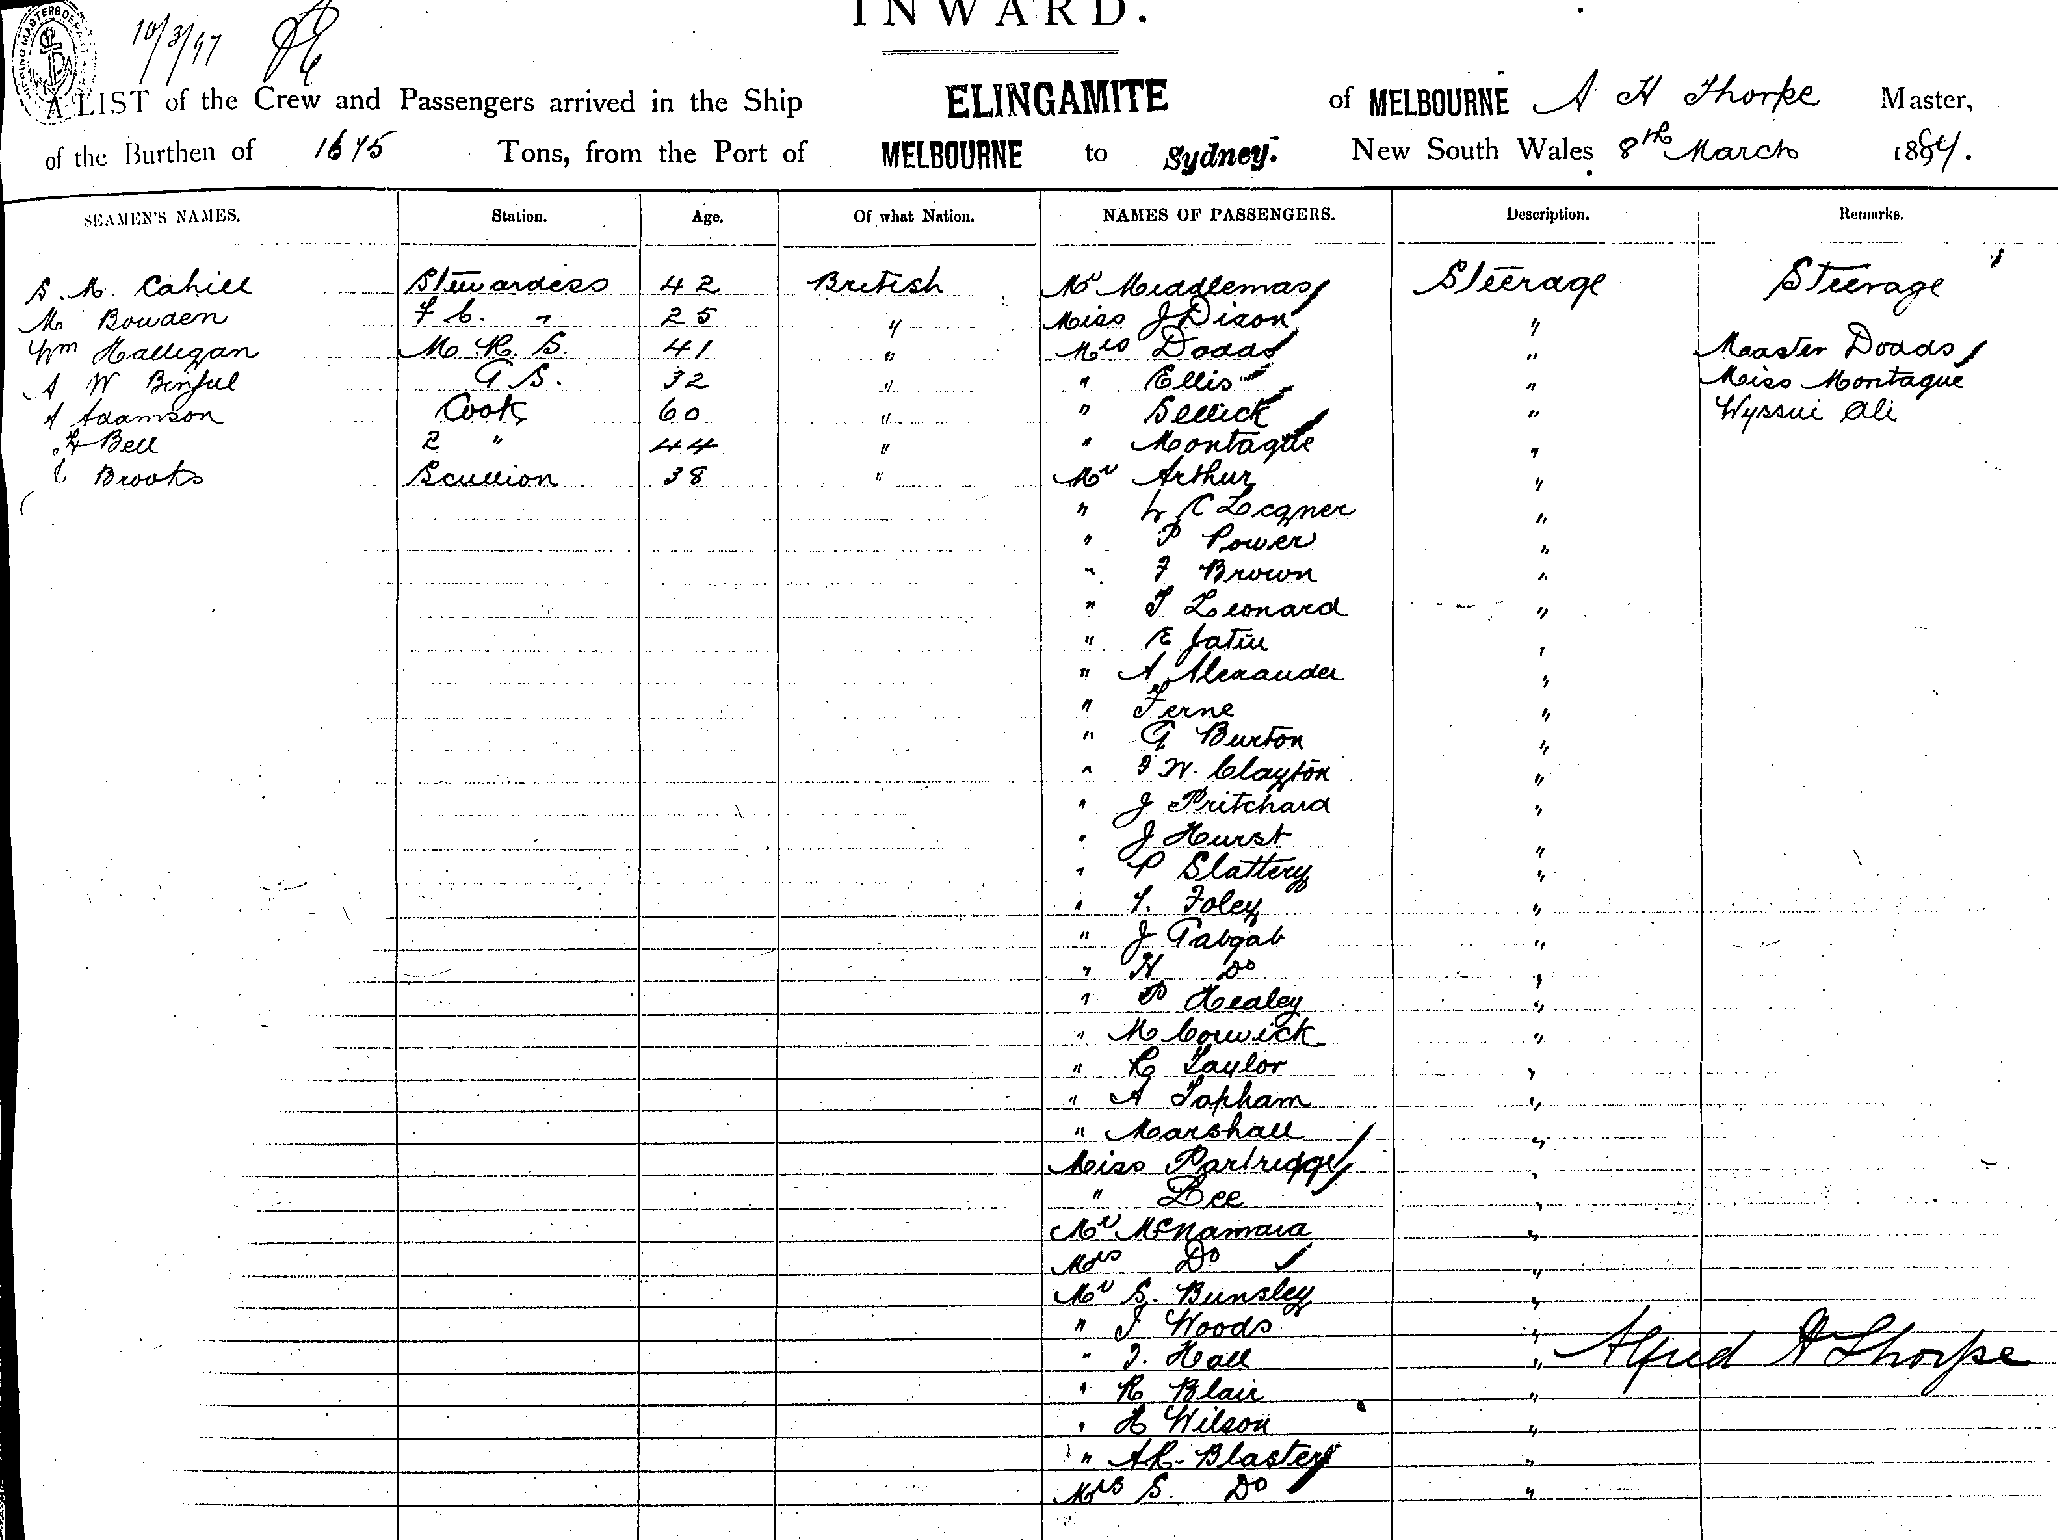 INWARD.
10/3/97
A LIST of the Crew and Passengers arrived in the Ship ELINGAMITE of MELBOURNE A H Thorpe Master,
of the Burthen of 1675 Tons, from the Port of MELBOURNE to Sydney. New South Wales 8th March 1897.
SEAMEN'S NAMES. Station. Age. Of what Nation. NAMES OF PASSENGERS. Description. Remarks.
S. M. Cahill Stewardess 42 British Mr Middlemas Steerage Steerage
M Bowden F C. " 25 " Miss J Dixon "
Wm Halligan M. R. S. 41 " Mrs Dodds " Master Dodds
A W Binful G S. 32 " " Ellis " Miss Montague
A Adamson Cook 60 " " Sellick " Wyssui Ali
Bell 2 " 44 " " Montague "
Brooks Scullion 38 " Mr Arthur "
" Legner "
" P Power "
" F Brown "
" T Leonard "
" E "
" A Alexander "
" Ferne "
" G Burton "
" F W. Clayton "
" J Pritchard "
" J Hurst "
" P Slattery "
" T. Foley "
" J Gabgab "
" H Do "
" P Healey "
" M Corwick "
" R Taylor "
" A Tapham "
" Marshall "
Miss Partridge "
" Lee "
Mr McNamara "
Mrs Do "
Mr S. Bunsley "
" J Woods "
" J. Hall " Alfred H Thorpe
" R Blair "
" H Wilson "
" A R Blastery "
Mrs S. Do "